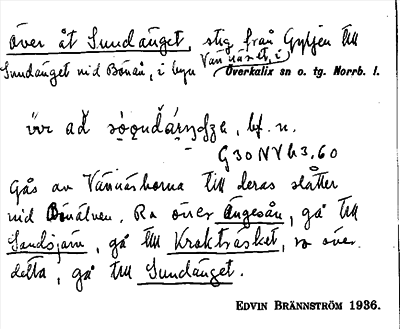 över åt Sundänget, stig från Gyljen till
Sundänget vid Bönän, i byn Vännäset, i
Överkalix sn o. tg. Norrb. l.
bf. n.
G30NVh3.60
Gås av Vännäsborna till deras slåtter
vid Bönälven. Ro över Ängesån, gå till
Landsjärn, gå till Kroktrasket, ro över
detta, gå till Sundänget.
EDVIN BRÄNNSTRÖM 1936.